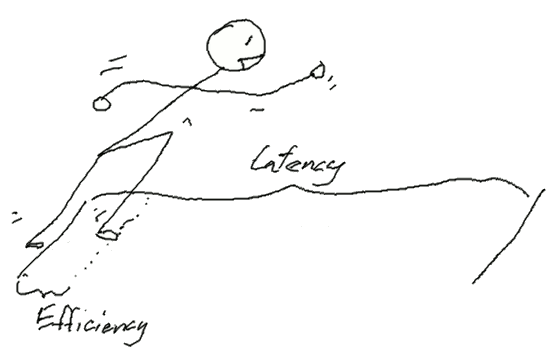 Latency
Efficiency